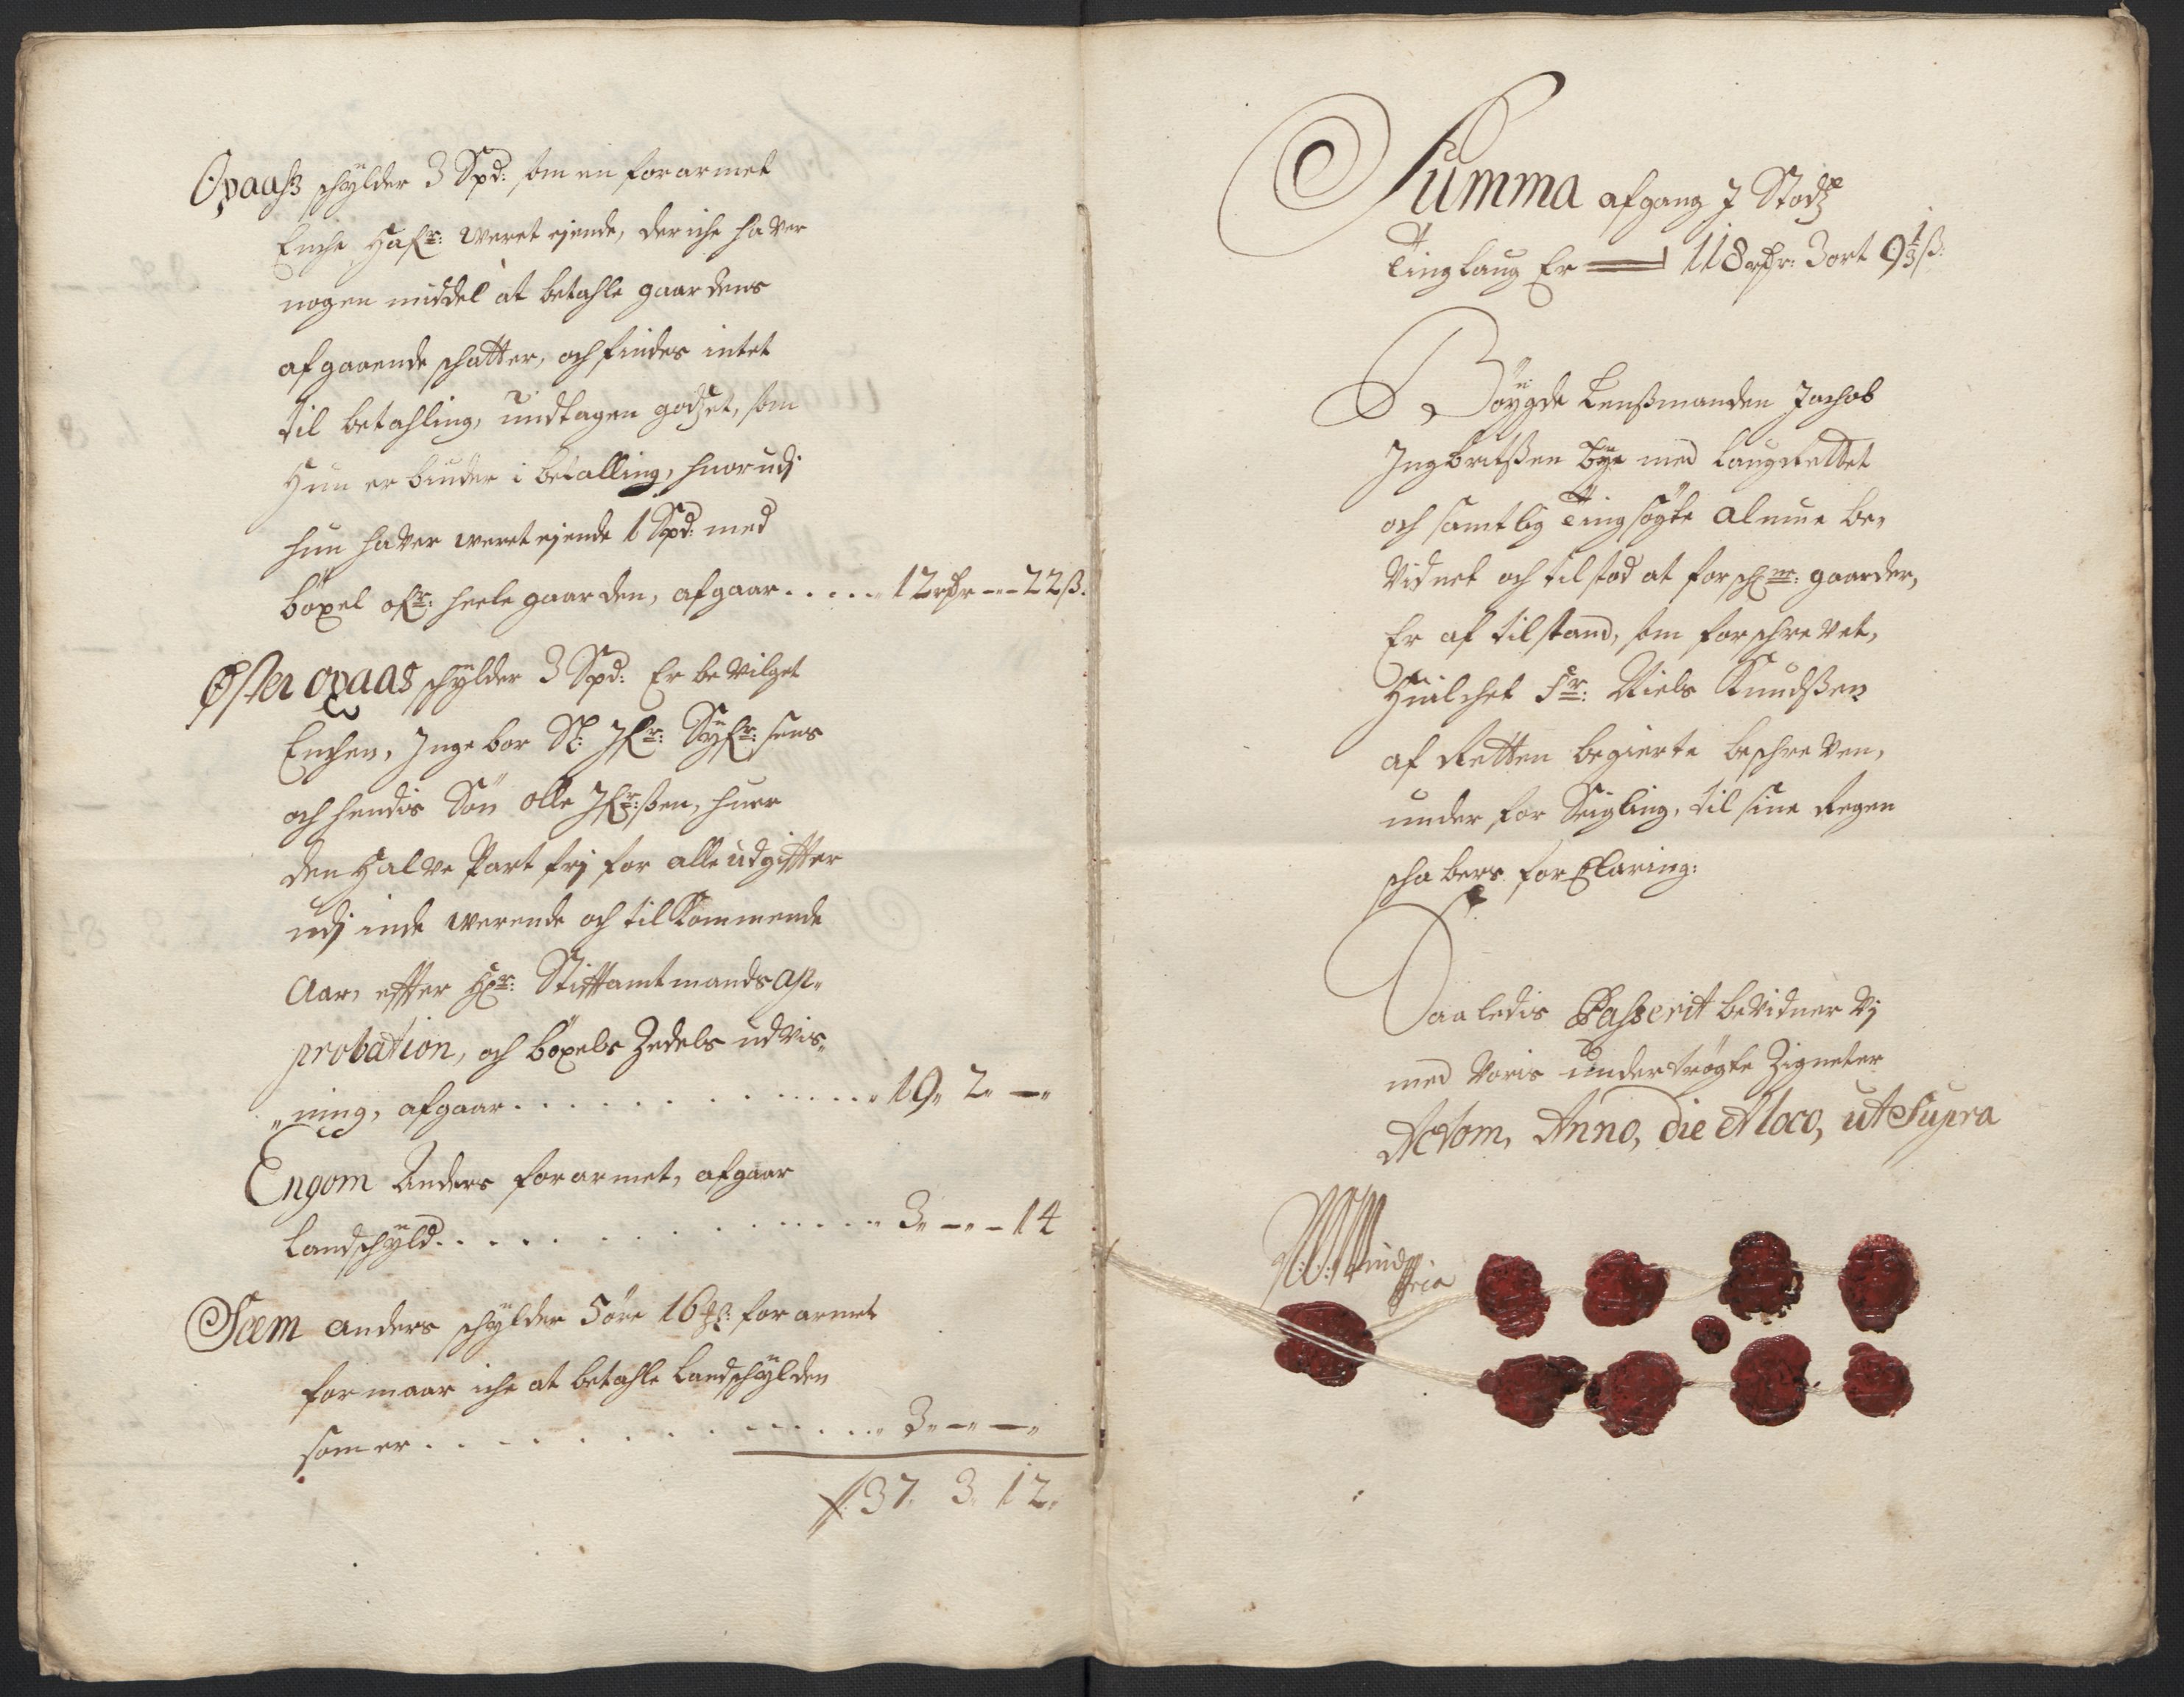 Opaas schylder 3 Spd: som en forarmet
Enche hafr: weret ejende, der iche haver
nogen middel at betahle gaardens
afgaaende schatter, och findes intet
til betahling, undtagen godzet, som
Hun er biuder i betalling, huorudj
hun haver weret ejende 1 Spd: med
böxel ofr: heele gaarden, afgaar ..... 12 rdr -- 22 ß.
Øster opaas schylder 3 Spd: Er bevilget
Enchen, Ingebor Sl: Ifr: Syfr: sens
och hendis Sön olle Ifr:ßen, huer
den Halve Part frj for alle udgifter
udj inde werende och tilkommende
Aar, effter Hr: Stifftamtmands ap„
probation, och böxels Zedels udvis„
„ning, afgaar ........... 19„ 2„ —„
Engom Anders forarmet, afgaar
Landschyld ........... 3„ —„ – 14
Seem Anders schylder 5 öre 16 ß: forarmet
formaar iche at betahle Landschylden
som er ........... 3„ —„ —„
37„ 3„ 12„
Summa afgang I Stodz
Tinglaug Er — 118 rdr: 3 ort 9 1/3 ß:
Böygde Lensmanden Jachob
Ingbritßen Bye med Laugrettet
och samtlig Tingsögte Almue be„
Vidnet och tilstod at forschr: gaarder,
Er af tilstand, som forschrevet,
Huilchet Sr: Niels Knudßen
af Retten begierte beschreven,
under forseigling, til sine Regen
schabers forClaring:
Saaledis Passerit bevidner Vj
med Voris undertrögte Zigneter
Actom, Anno, die et loco, ut Supra